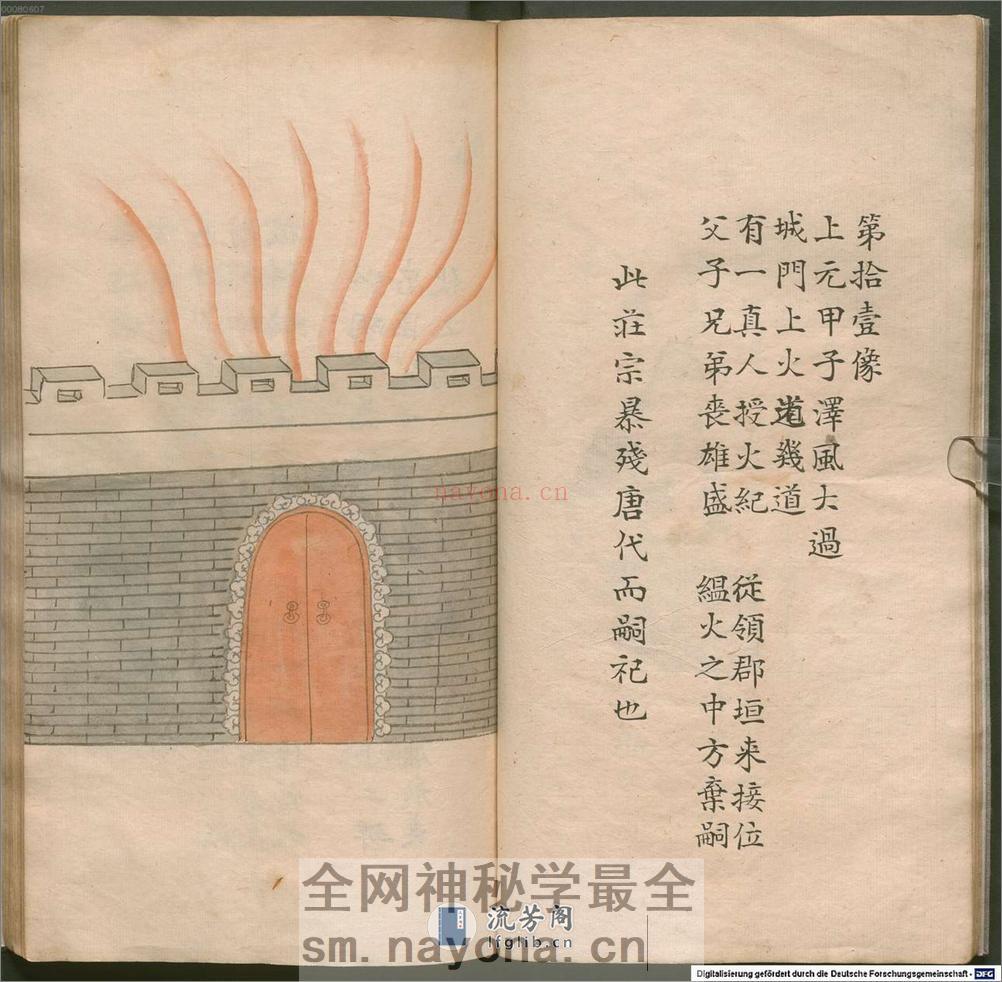 00080607
第拾壹像
上元甲子澤風大過
城門上火道幾道
有一真人授火紀　從領郡垣来接位
父子兄弟丧雄盛　緼火之中方棄嗣
此莊宗暴殘唐代而嗣祀也
nayona.cn
全网神秘学最全
流芳阁
lfglib.cn
sm.nayona.cn
Digitalisierung gefördert durch die Deutsche Forschungsgemeinschaft - DFG